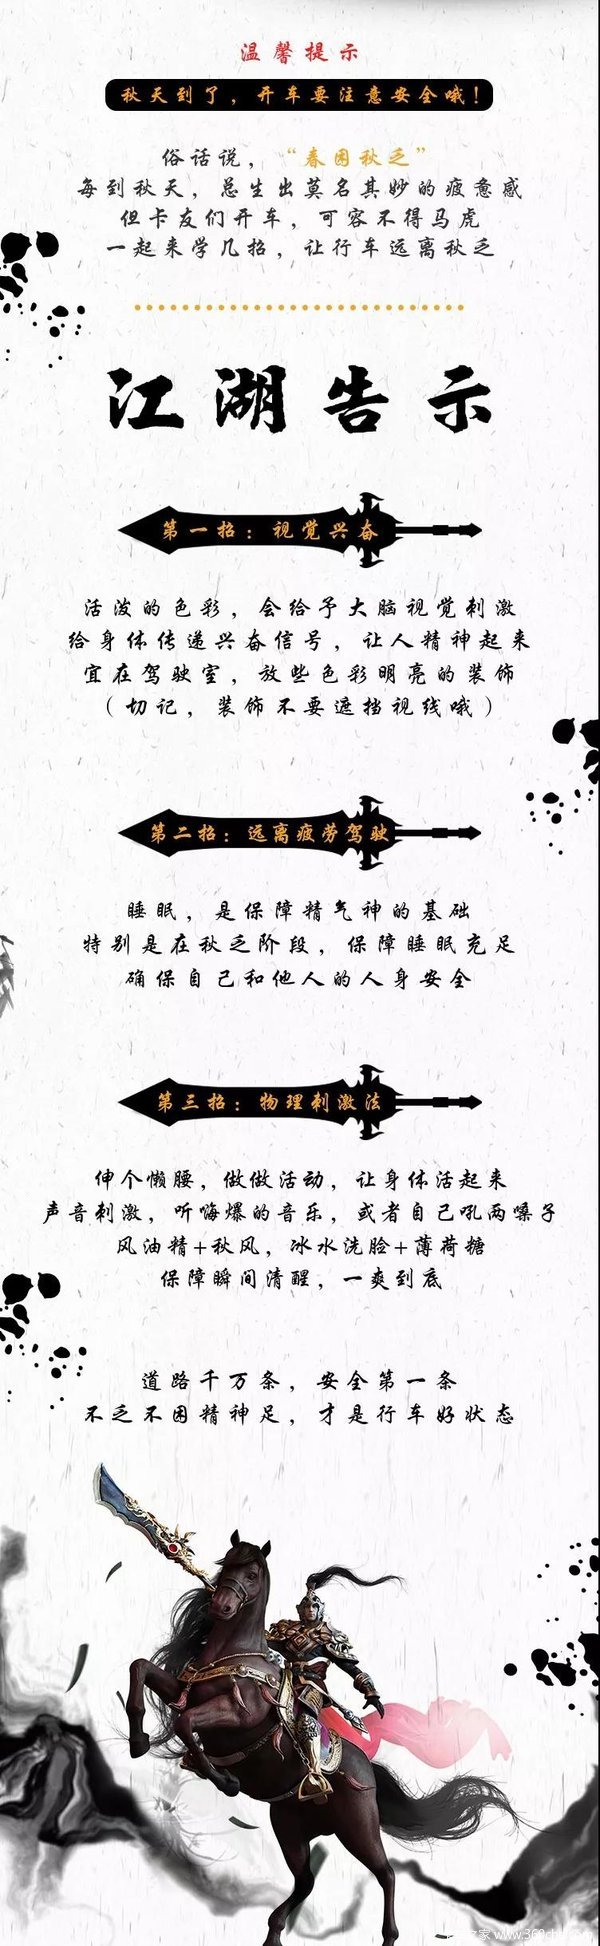 温馨提示
秋天到了，开车要注意安全哦！
俗话说，“春困秋乏”
每到秋天，总生出莫名其妙的疲惫感
但卡友们开车，可容不得马虎
一起来学几招，让行车远离秋乏
江湖告示
第一招：视觉兴奋
活泼的色彩，会给予大脑视觉刺激
给身体传递兴奋信号，让人精神起来
宜在驾驶室，放些色彩明亮的装饰
（切记，装饰不要遮挡视线哦）
第二招：远离疲劳驾驶
睡眠，是保障精气神的基础
特别是在秋乏阶段，保障睡眠充足
确保自己和他人的人身安全
第三招：物理刺激法
伸个懒腰，做做活动，让身体活起来
声音刺激，听嗨爆的音乐，或者自己吼两嗓子
风油精+秋风，冰水洗脸+薄荷糖
保障瞬间清醒，一爽到底
道路千万条，安全第一条
不乏不困精神足，才是行车好状态